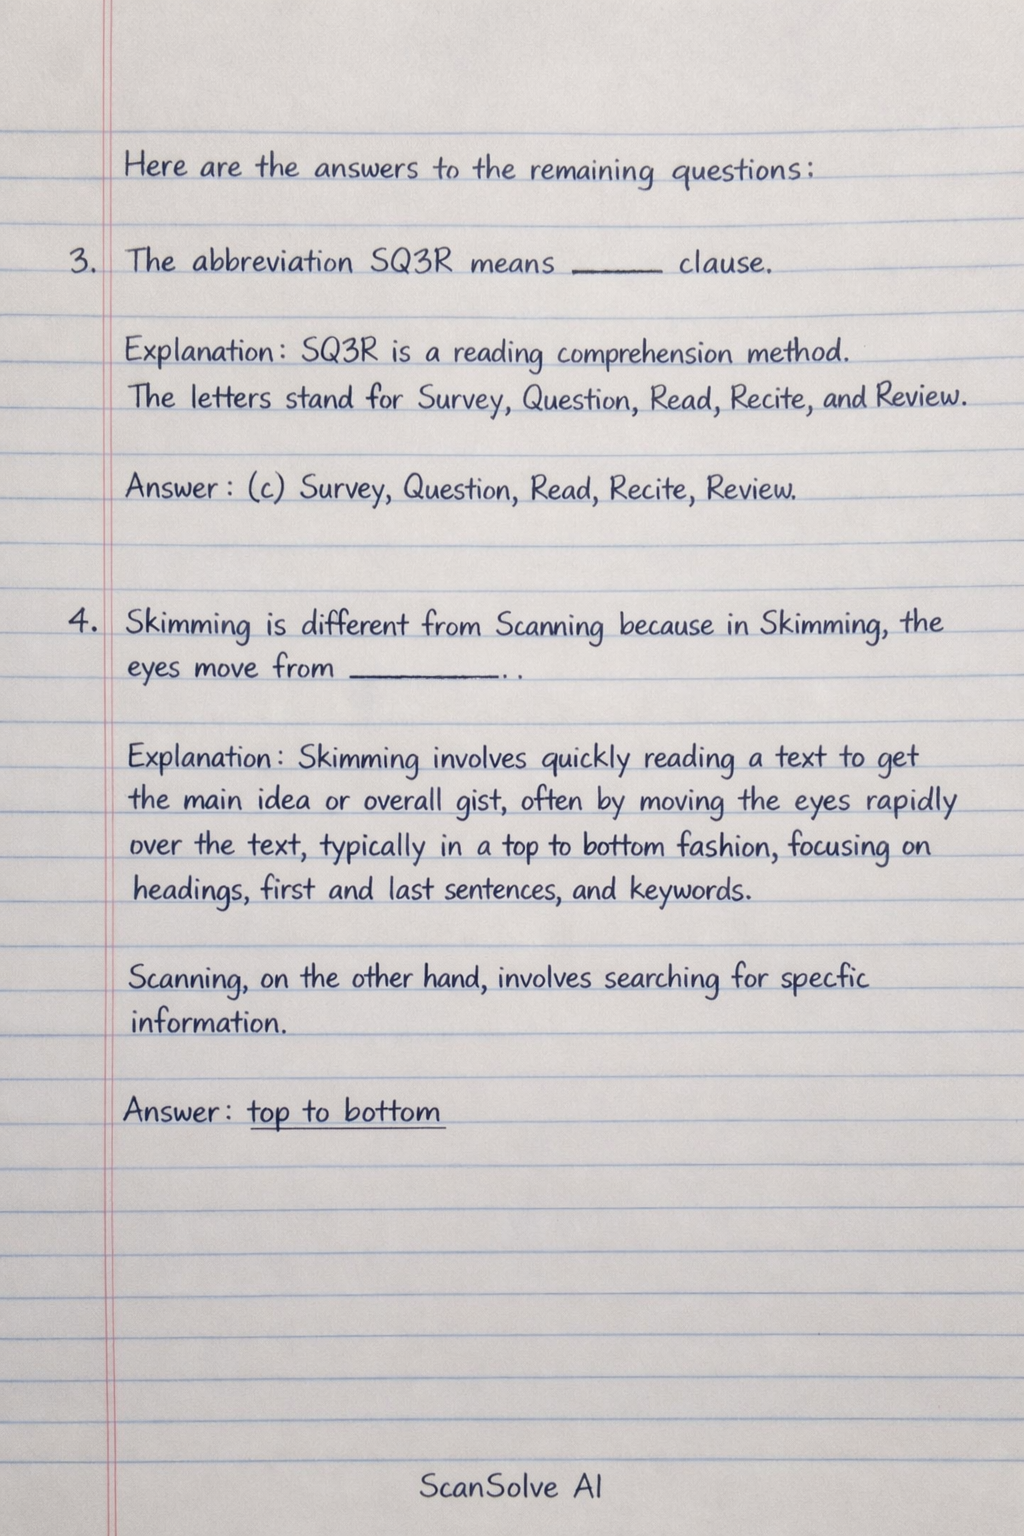 Here are the answers to the remaining questions:
3. The abbreviation SQ3R means _____ clause.
Explanation: SQ3R is a reading comprehension method.
The letters stand for Survey, Question, Read, Recite, and Review.
Answer: (c) Survey, Question, Read, Recite, Review.
4. Skimming is different from Scanning because in Skimming, the
eyes move from _________..
Explanation: Skimming involves quickly reading a text to get
the main idea or overall gist, often by moving the eyes rapidly
over the text, typically in a top to bottom fashion, focusing on
headings, first and last sentences, and keywords.
Scanning, on the other hand, involves searching for specfic
information.
Answer: top to bottom
ScanSolve AI